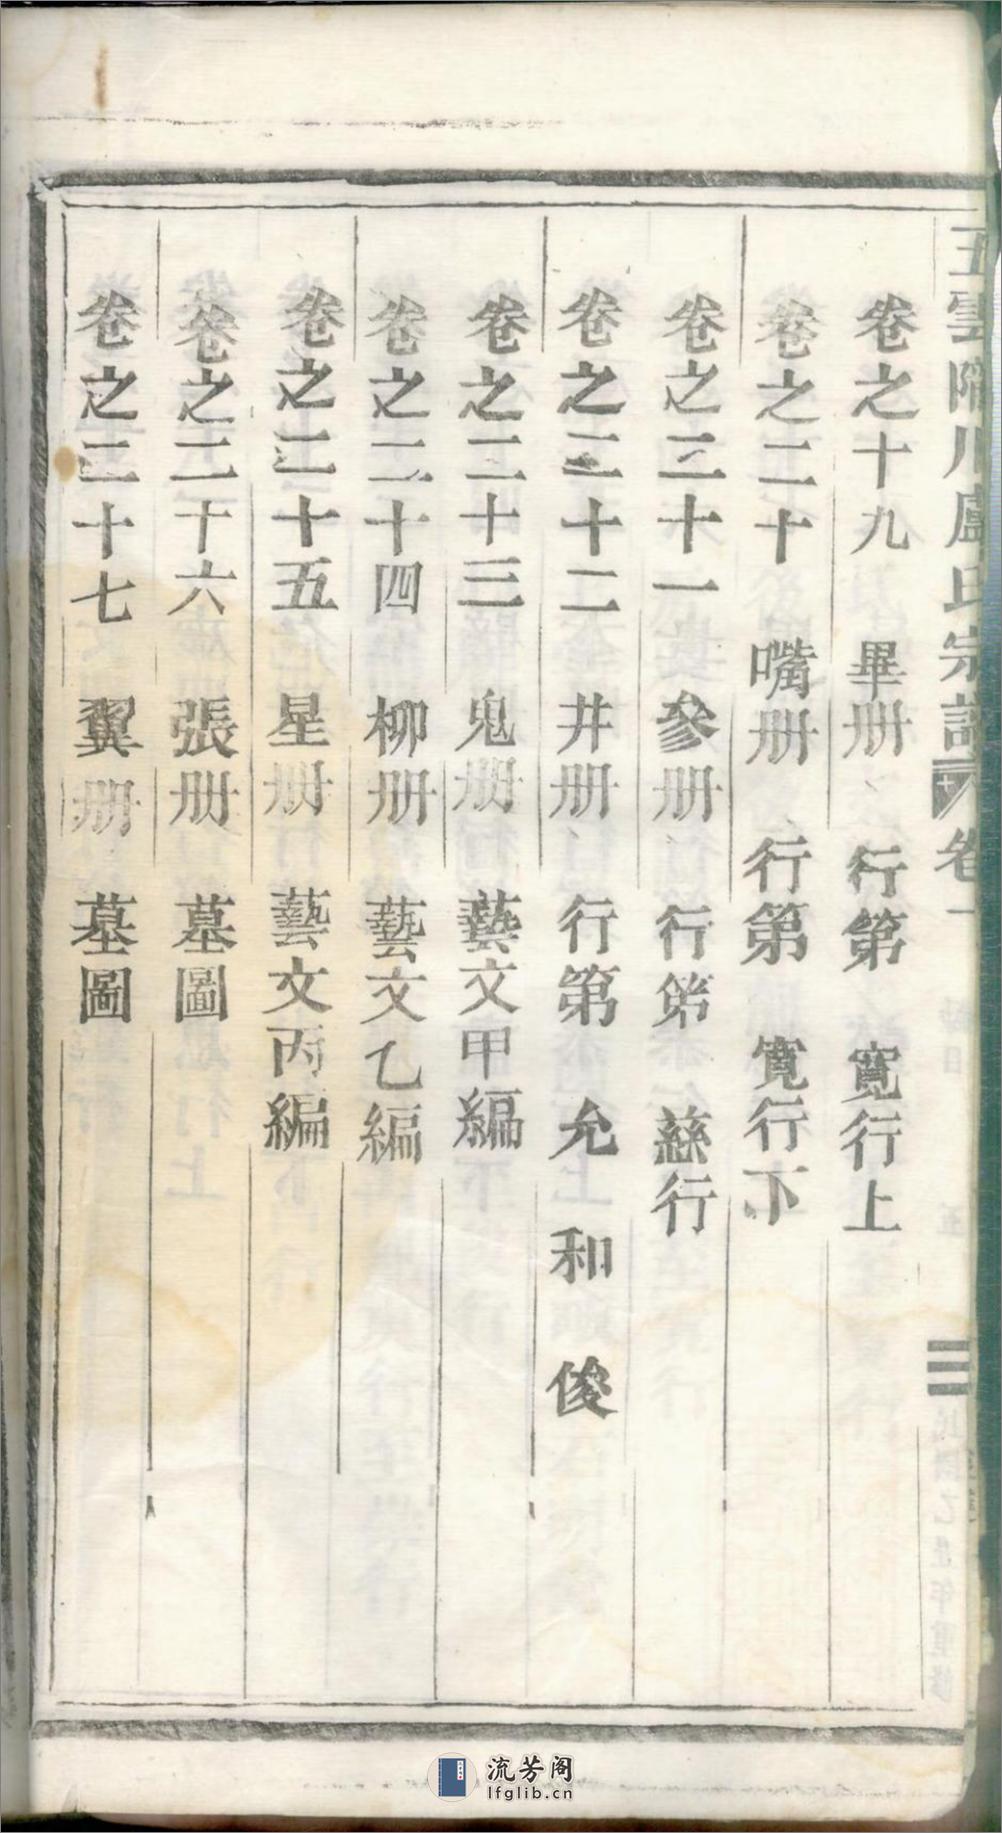 五雲隋川盧氏宗譜 卷一
卷之十九 畢册 行第 寬行上
卷之二十 嘴册 行第 寬行下
卷之二十一 參册 行第 慈行
卷之二十二 井册 行第 允 和 俊
卷之二十三 鬼册 藝文甲編
卷之二十四 柳册 藝文乙編
卷之二十五 星册 藝文丙編
卷之二十六 張册 墓圖
卷之二十七 翼册 墓圖
流芳阁
lfglib.cn